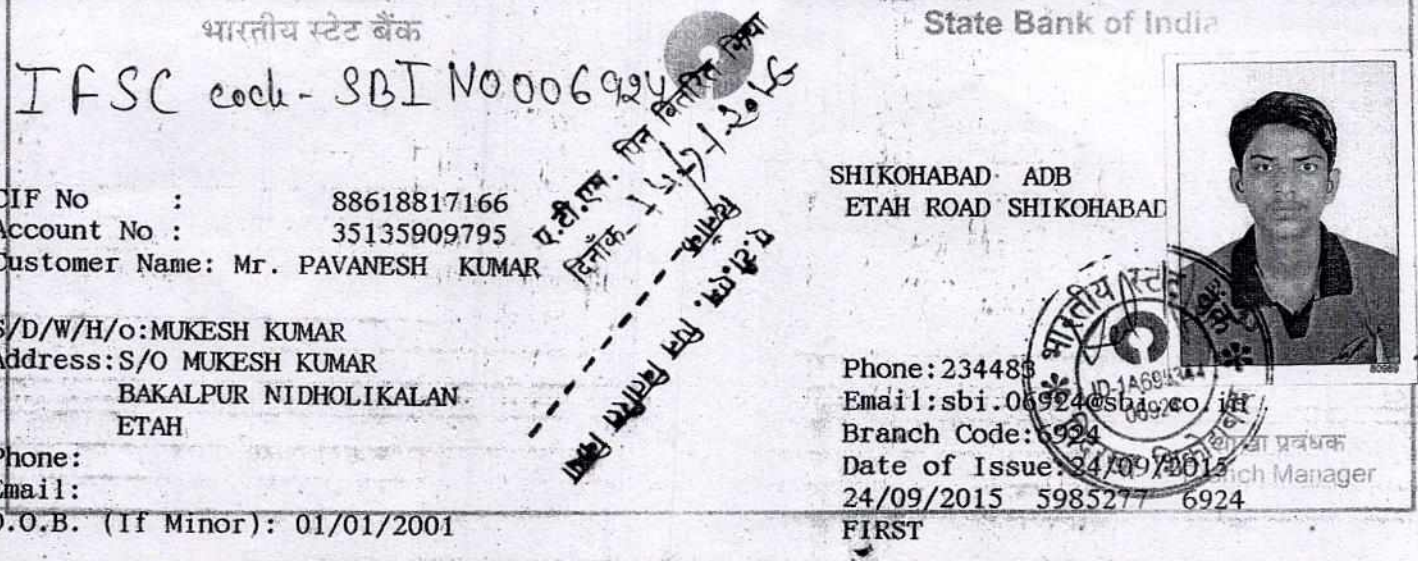 भारतीय स्टेट बैंक
State Bank of India
IFSC code - SBI NO006924
ए.टी.एम. पिन वितरित किया
दिनाँक-
CIF No : 88618817166
Account No : 35135909795
Customer Name: Mr. PAVANESH KUMAR
S/D/W/H/o:MUKESH KUMAR
Address:S/O MUKESH KUMAR
BAKALPUR NIDHOLIKALAN
ETAH
Phone:
Email:
D.O.B. (If Minor): 01/01/2001
SHIKOHABAD ADB
ETAH ROAD SHIKOHABAD
Phone:234483
Email:sbi.06924@sbi.co.in
Branch Code:6924
Date of Issue:24/09/2015
शाखा प्रबंधक
Branch Manager
24/09/2015 5985277 6924
FIRST
भारतीय स्टेट
06924